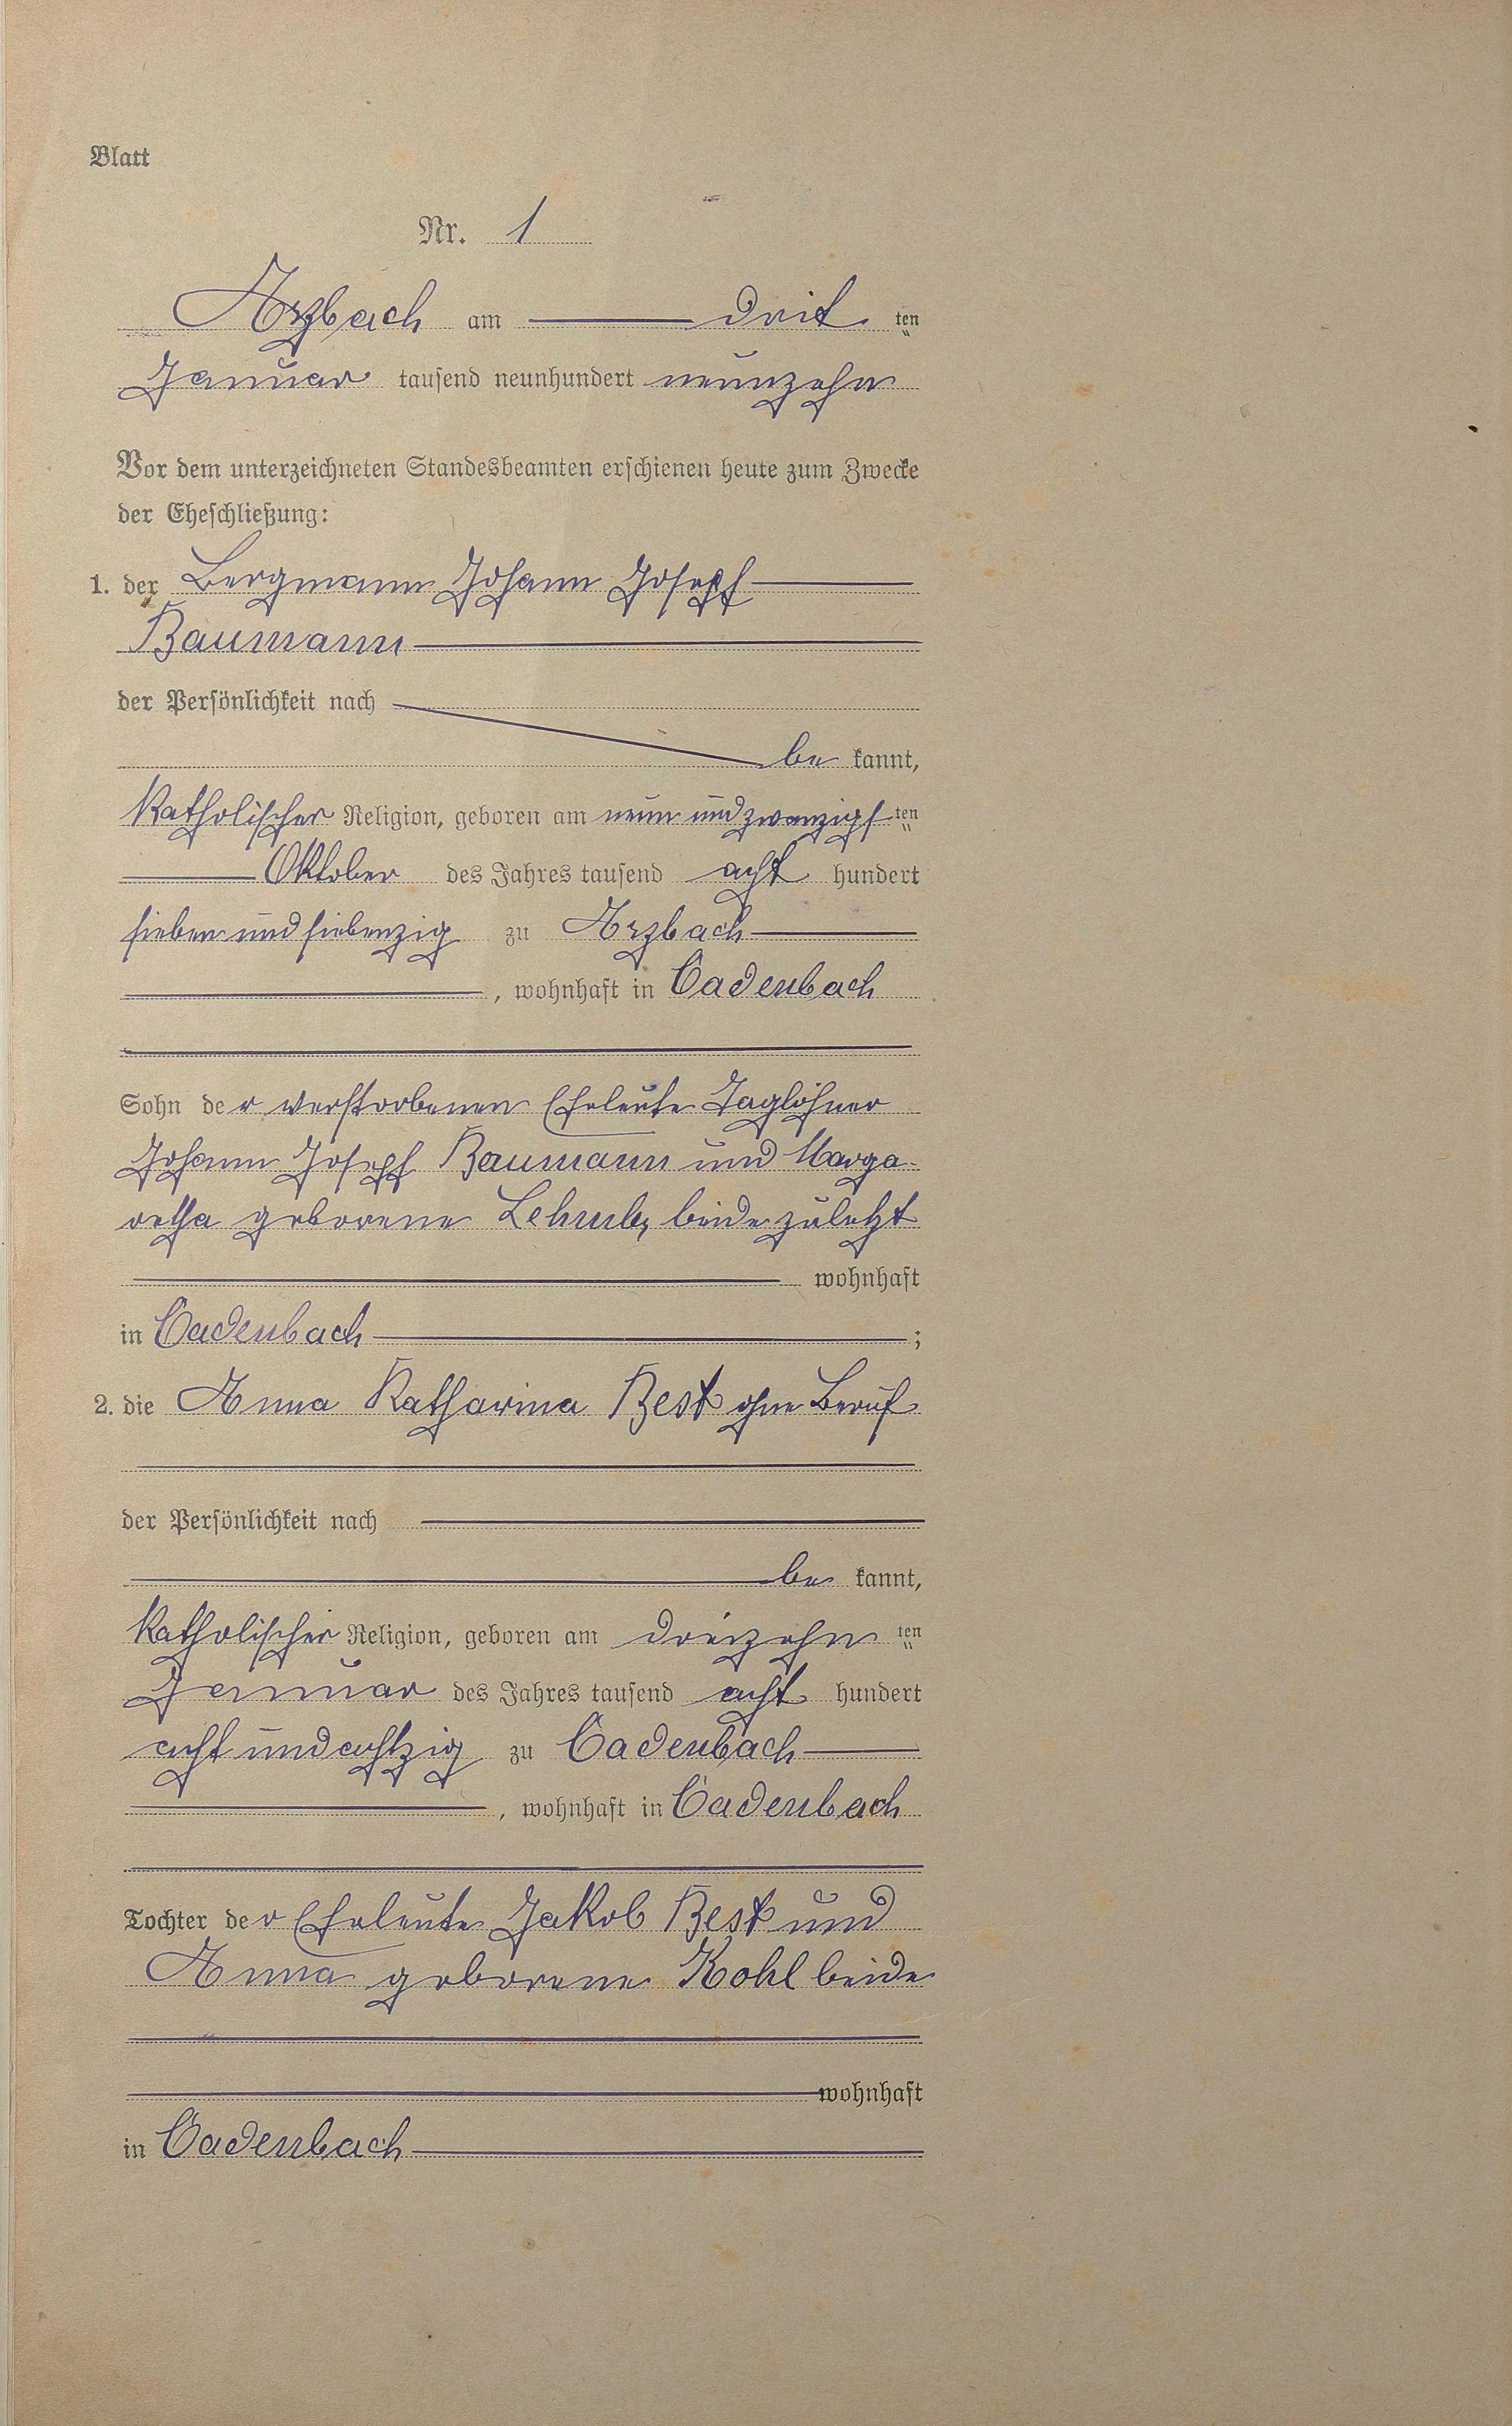 Blatt
Nr. 1
Arzbach am drit ten
Januar tausend neunhundert neunzehn
Vor dem unterzeichneten Standesbeamten erschienen heute zum Zwecke
der Eheschließung:
1. der Bergmann Johann Joseph
Baumann
der Persönlichkeit nach
be kannt,
katholischer Religion, geboren am neun und zwanzigs ten
Oktober des Jahres tausend acht hundert
sieben und siebenzig zu Arzbach
, wohnhaft in Cadenbach
Sohn der verstorbenen Eheleute Taglöhner
Johann Joseph Baumann und Marga-
retha geborene beide zuletzt
wohnhaft
in Cadenbach ;
2. die Anna Katharina Best ohne Beruf
der Persönlichkeit nach
be kannt,
katholischer Religion, geboren am dreizehn ten
Januar des Jahres tausend acht hundert
acht und achtzig zu Cadenbach
, wohnhaft in Cadenbach
Tochter der Eheleute Jakob Best und
Anna geborene Kohl beide
wohnhaft
in Cadenbach